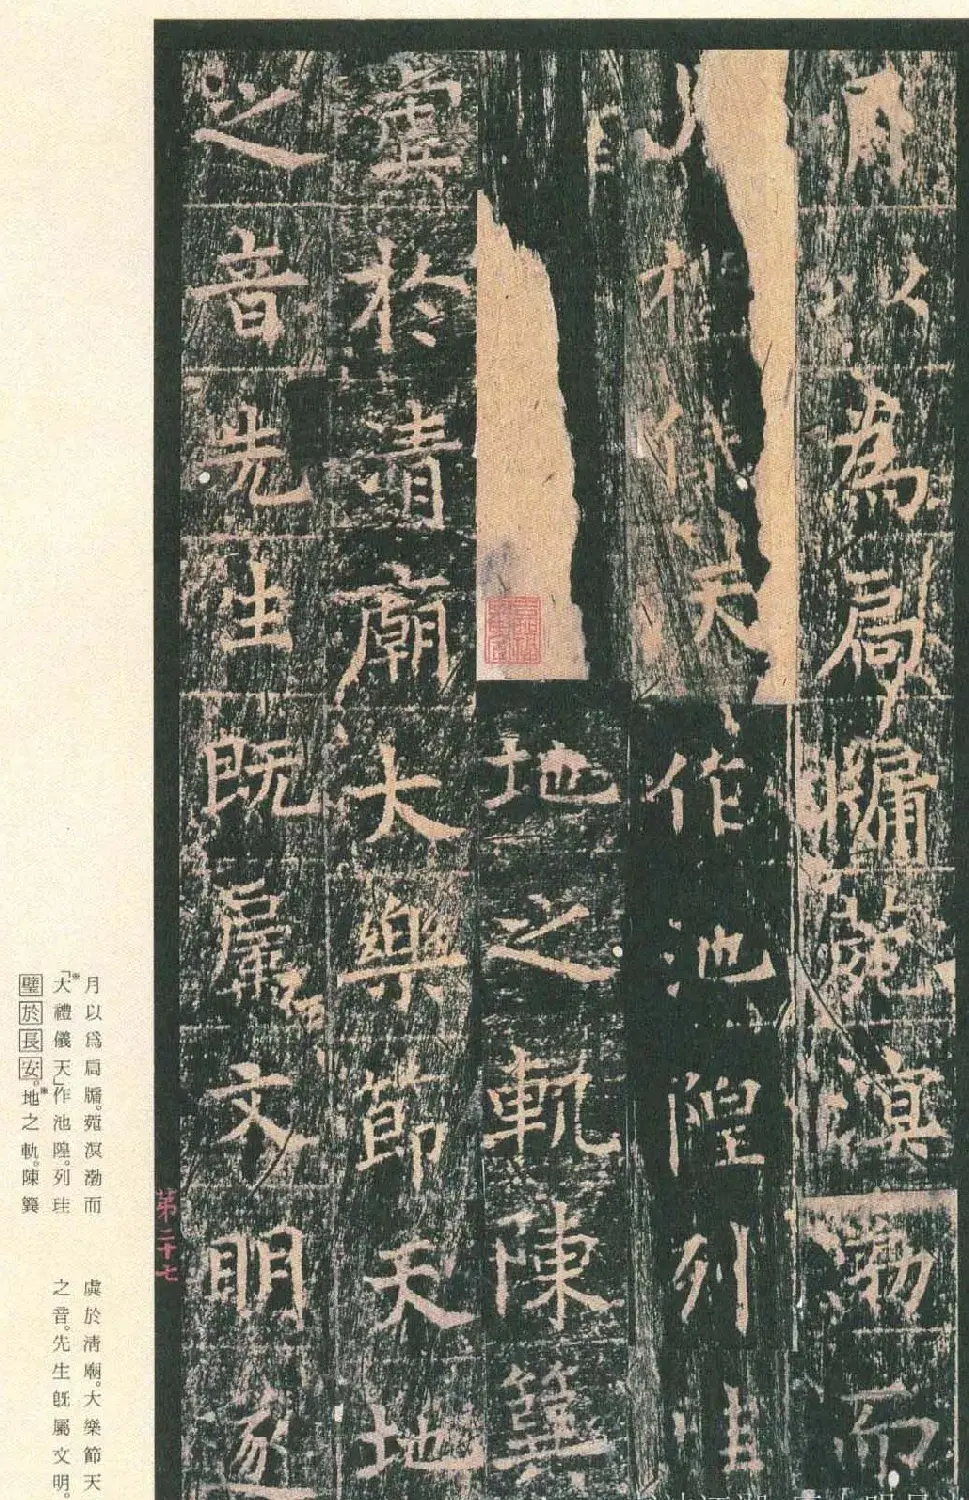 月以為扃牖菀溟渤而
天作池隍列珪
地之軌陳簨
虡於清廟大樂節天地
之音先生既屬文明遂
第二十七
月以爲扃牖。菀溟渤而
「大禮儀天」作池隍。列珪
璧於長安。地之軌。陳簨
虡於清廟。大樂節天
之音。先生旣屬文明。